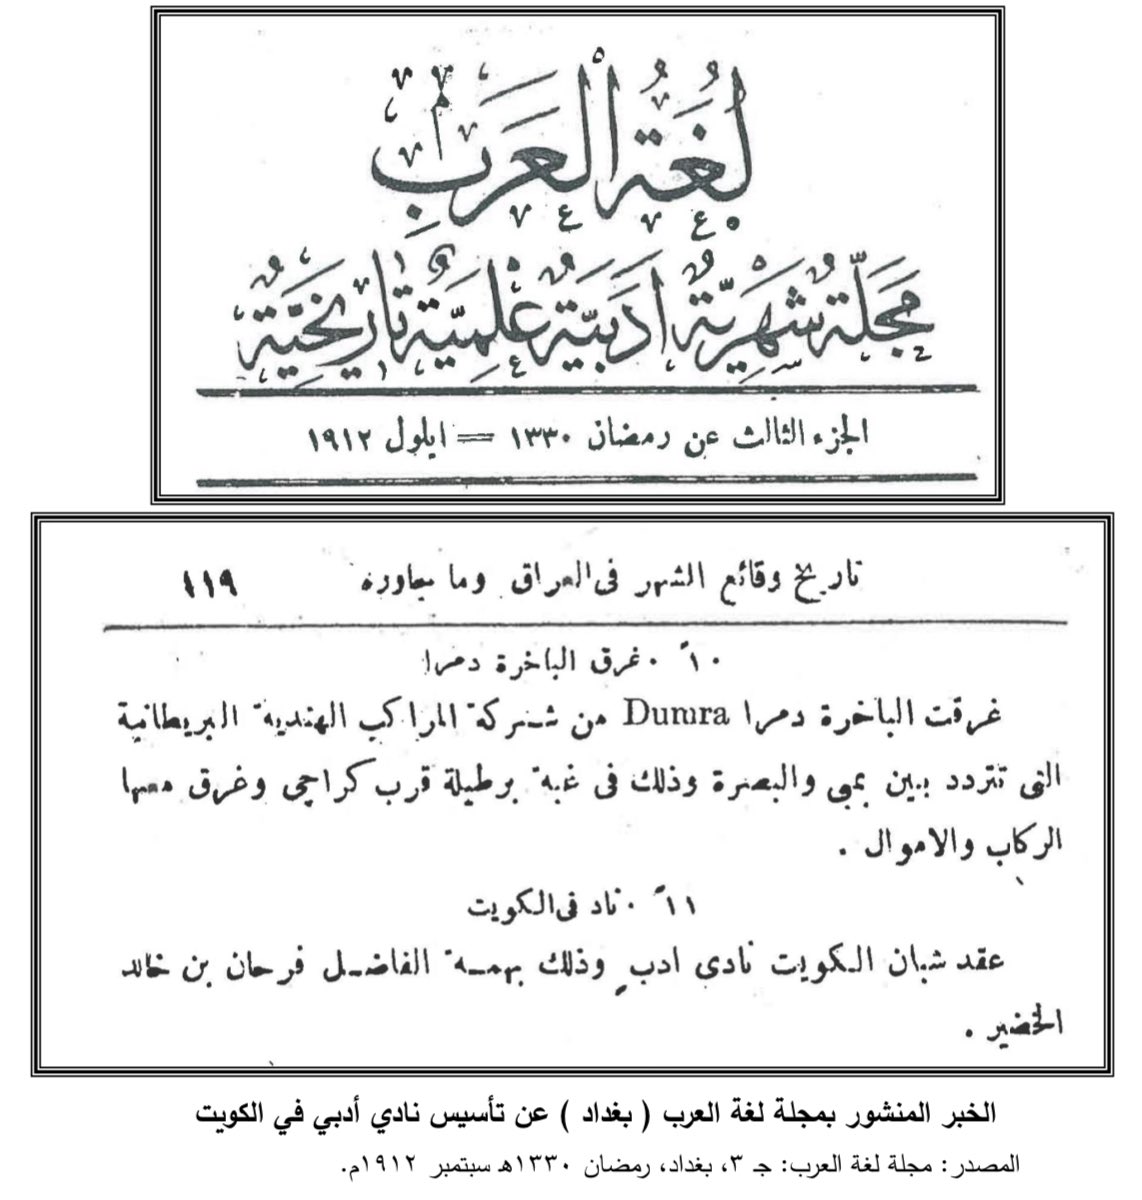 لُغَةُ الْعَرَبِ
مَجَلَّةٌ شَهْرِيَّةٌ أَدَبِيَّةٌ عِلْمِيَّةٌ تَارِيخِيَّةٌ
الجزء الثالث عن رمضان ١٣٣٠ = ايلول ١٩١٢
تاريخ وقائع الشهر فى العراق وما يجاوره ١١٩
١٠ً . غرق الباخرة دمرا
غرقت الباخرة دمرا Dumra من شركة المراكب الهندية البريطانية
التى تتردد بين بمبى والبصرة وذلك فى غبة برطيلة قرب كراچى وغرق معها
الركاب والاموال .
١١ً . ناد فى الكويت
عقد شبان الكويت نادى ادبٍ وذلك بهمة الفاضل فرحان بن خالد
الخضير .
الخبر المنشور بمجلة لغة العرب ( بغداد ) عن تأسيس نادي أدبي في الكويت
المصدر: مجلة لغة العرب: جـ ٣، بغداد، رمضان ١٣٣٠هـ سبتمبر ١٩١٢م.